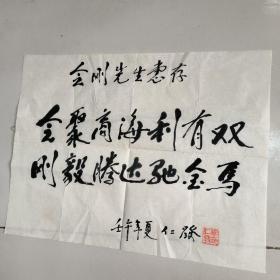 会刚先生惠存
会聚商海利有双
刚毅腾达驰金马
壬午年夏 仁发